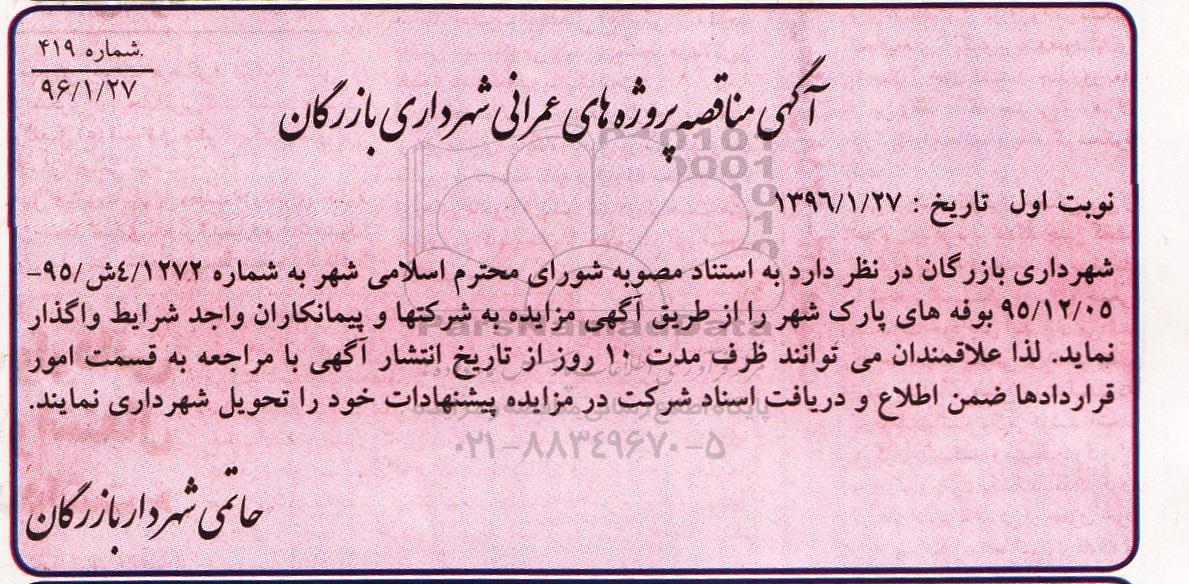 شماره ۴۱۹
۹۶/۱/۲۷
آگهی مناقصه پروژه های عمرانی شهرداری بازرگان
نوبت اول تاریخ : ۱۳۹٦/۱/۲۷
شهرداری بازرگان در نظر دارد به استناد مصوبه شورای محترم اسلامی شهر به شماره ٤/۱۲۷۲ش/۹٥-
۹٥/۱۲/۰٥ بوفه های پارک شهر را از طریق آگهی مزایده به شرکتها و پیمانکاران واجد شرایط واگذار
نماید. لذا علاقمندان می توانند ظرف مدت ۱۰ روز از تاریخ انتشار آگهی با مراجعه به قسمت امور
قراردادها ضمن اطلاع و دریافت اسناد شرکت در مزایده پیشنهادات خود را تحویل شهرداری نمایند.
حاتمی شهردار بازرگان
ParsNamadData
پایگاه اطلاع رسانی مناقصه و مزایده
۰۲۱-۸۸۳۴۹۶۷۰-۵